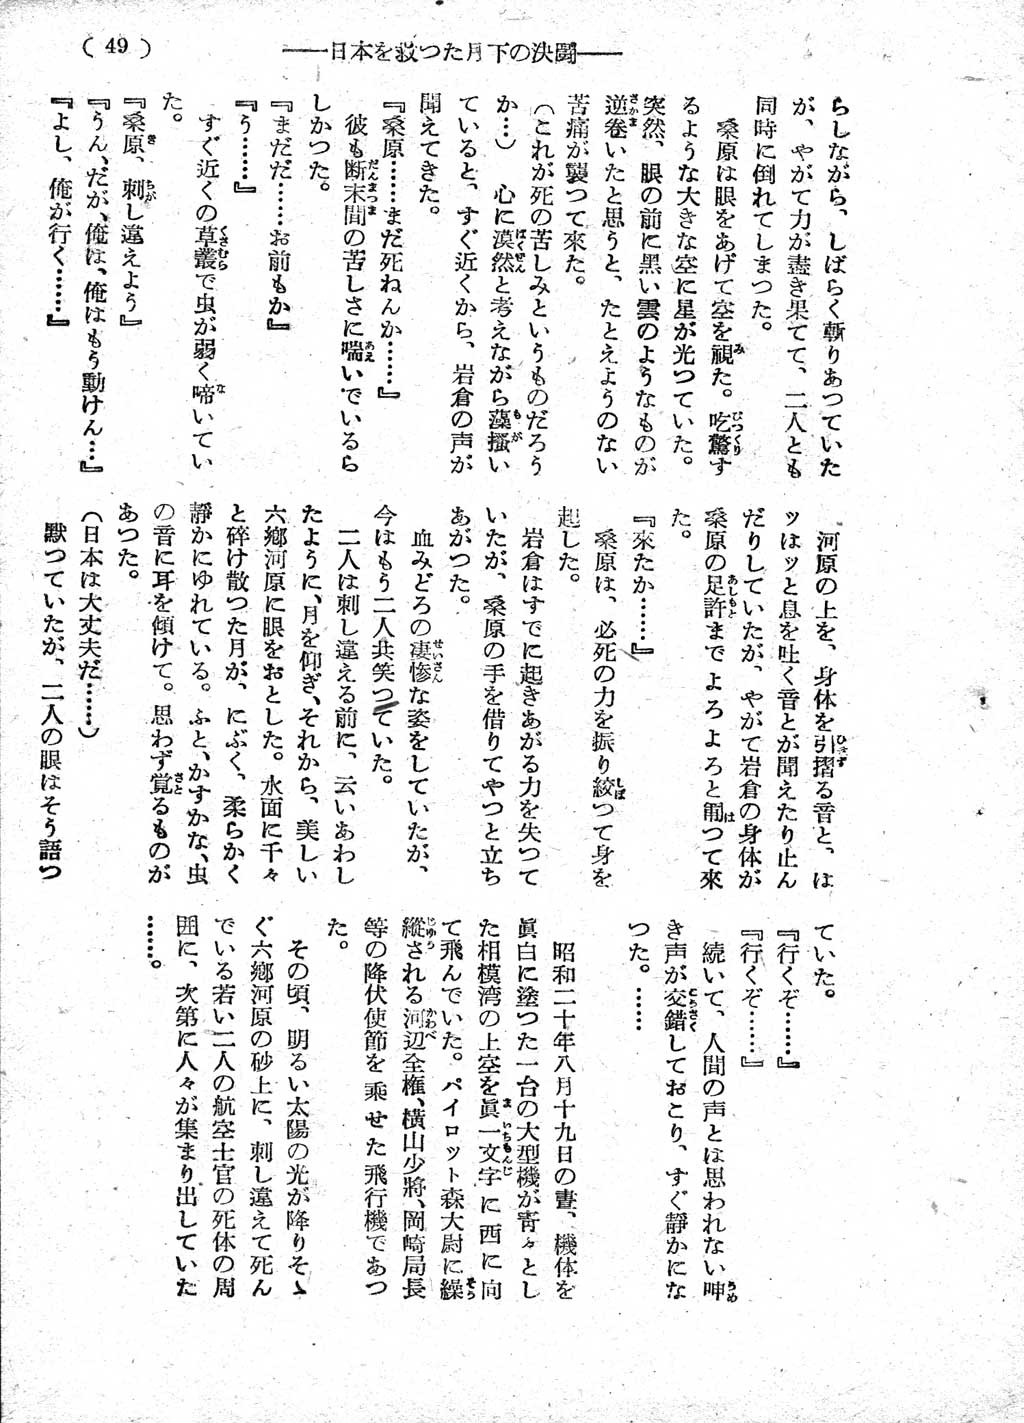 ( 49 )
――日本を救つた月下の決闘――
らしながら、しばらく斬りあつていた
が、やがて力が盡き果てて、二人とも
同時に倒れてしまつた。
桑原は眼をあげて空を視た。吃驚す
るような大きな空に星が光つていた。
突然、眼の前に黒い雲のようなものが
逆卷いたと思うと、たとえようのない
苦痛が襲つて来た。
（これが死の苦しみというものだろう
か…）　心に漠然と考えながら藻搔い
ていると、すぐ近くから、岩倉の声が
聞えてきた。
『桑原……まだ死ねんか……』
彼も断末間の苦しさに喘いでいるら
しかつた。
『まだだ……お前もか』
『う……』
すぐ近くの草叢で虫が弱く啼いてい
た。
『桑原、刺し違えよう』
『うん、だが、俺は、俺はもう動けん…』
『よし、俺が行く……』
河原の上を、身体を引摺る音と、は
ッはッと息を吐く音とが聞えたり止ん
だりしていたが、やがて岩倉の身体が
桑原の足許までよろよろと匍つて來
た。
『來たか……』
桑原は、必死の力を振り絞つて身を
起した。
岩倉はすでに起きあがる力を失つて
いたが、桑原の手を借りてやつと立ち
あがつた。
血みどろの凄惨な姿をしていたが、
今はもう二人共笑つていた。
二人は刺し違える前に、云いあわし
たように、月を仰ぎ、それから、美しい
六郷河原に眼をおとした。水面に千々
と碎け散つた月が、にぶく、柔らかく
靜かにゆれている。ふと、かすかな、虫
の音に耳を傾けて。思わず覚るものが
あつた。
（日本は大丈夫だ……）
默つていたが、二人の眼はそう語つ
ていた。
『行くぞ……』
『行くぞ……』
続いて、人間の声とは思われない呻
き声が交錯しておこり、すぐ靜かにな
つた。……
昭和二十年八月十九日の晝、機体を
眞白に塗つた一台の大型機が靑々とし
た相模湾の上空を眞一文字に西に向
て飛んでいた。パイロット森大尉に繰
縱される河辺全権、横山少將、岡崎局長
等の降伏使節を乘せた飛行機であつ
た。
その頃、明るい太陽の光が降りそゝ
ぐ六郷河原の砂上に、刺し違えて死ん
でいる若い二人の航空士官の死体の周
囲に、次第に人々が集まり出していた
……。